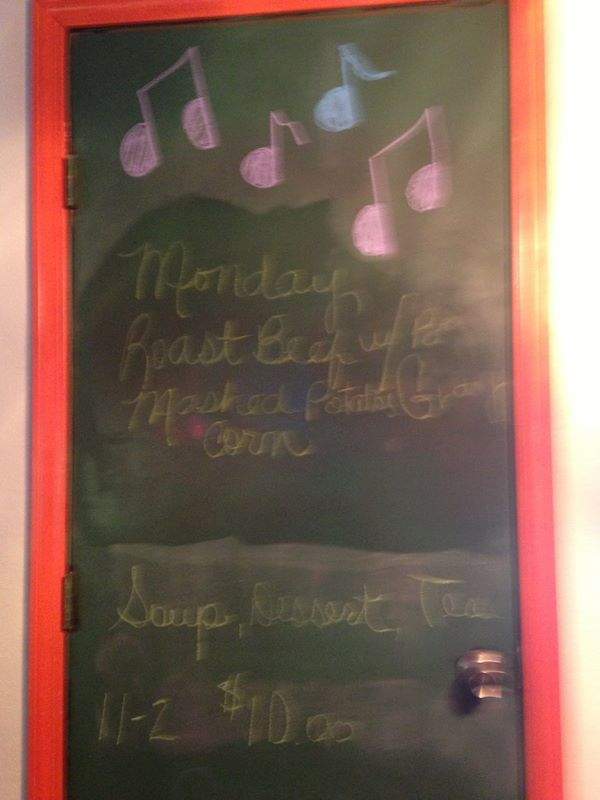 Monday
Roast Beef w/
Mashed Potatos Gravy
Corn
Soup, Dessert, Tea
11-2 $10.00